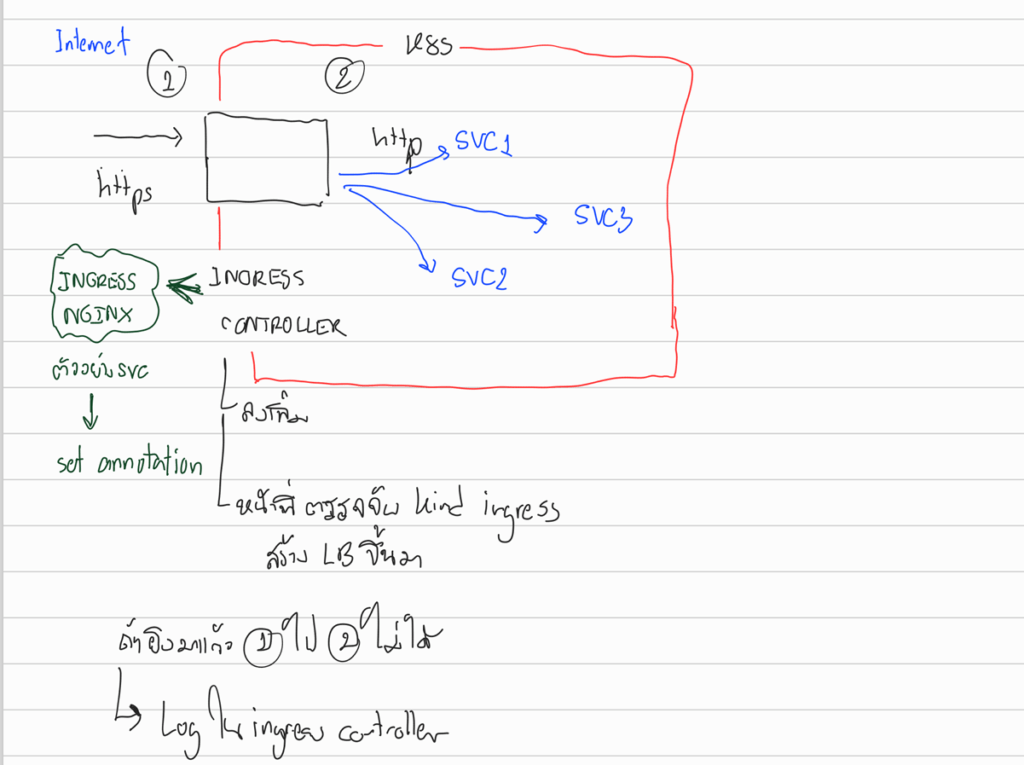 Internet
1
2
K8S
https
http
SVC1
SVC3
SVC2
INGRESS
CONTROLLER
INGRESS
NGINX
ตัวอย่าง SVC
set annotation
ลงเพิ่ม
หน้าที่ ตรวจจับ kind ingress
สร้าง LB ขึ้นมา
ถ้ายิงมาแล้ว 1 ไป 2 ไม่ได้
Log ใน ingress controller